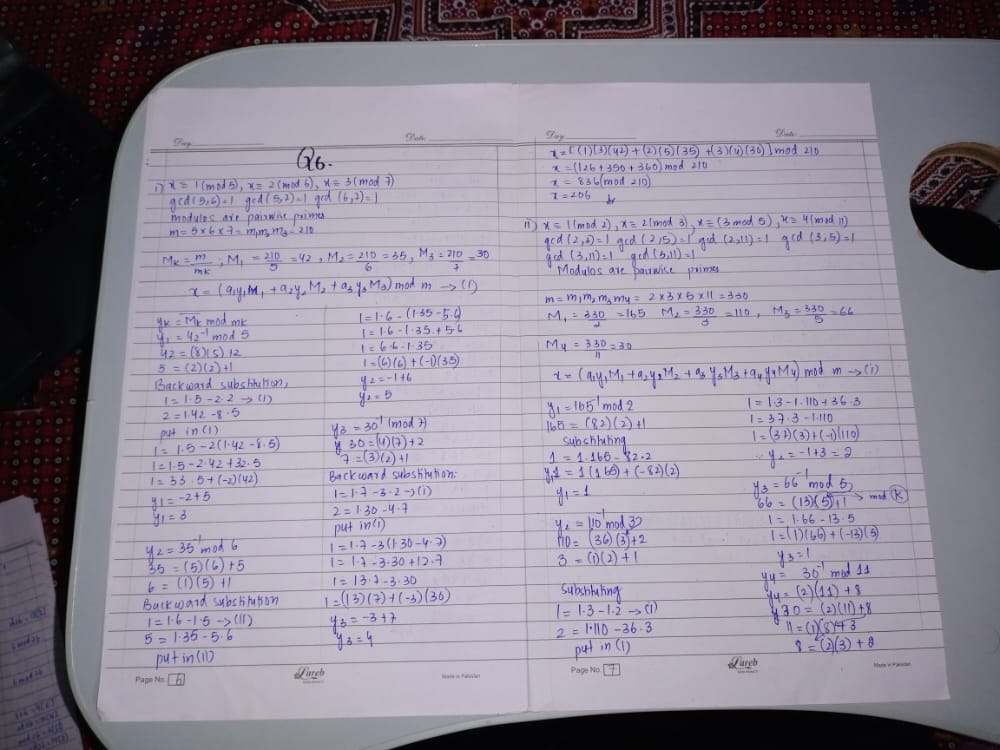 Day
Date:
Q6.
i) x ≡ 1 (mod 5), x ≡ 2 (mod 6), x ≡ 3 (mod 7)
gcd (5,6)=1 gcd (5,7)=1 gcd (6,7)=1
modulos are pairwise primes
m = 5x6x7 = m1 m2 m3 = 210
Mk = m/mk ; M1 = 210/5 = 42 , M2 = 210/6 = 35, M3 = 210/7 = 30
x = (a1y1M1 + a2y2M2 + a3y3M3) mod m → (1)
yk = Mk mod mk
y1 = 42⁻¹ mod 5
42 = (8)(5)+2
5 = (2)(2)+1
Backward substitution,
1 = 1.5 - 2.2 → (1)
2 = 1.42 - 8.5
put in (1)
1 = 1.5 - 2(1.42 - 8.5)
1 = 1.5 - 2.42 + 32.5
1 = 33.5 + (-2)(42)
y1 = -2+5
y1 = 3
y2 = 35⁻¹ mod 6
35 = (5)(6)+5
6 = (1)(5)+1
Backward substitution
1 = 1.6 - 1.5 → (11)
5 = 1.35 - 5.6
put in (11)
1 = 1.6 - (1.35 - 5.6)
1 = 1.6 - 1.35 + 5.6
1 = 6.6 - 1.35
1 = (6)(6) + (-1)(35)
y2 = -1+6
y2 = 5
y3 = 30⁻¹ (mod 7)
30 = (4)(7)+2
7 = (3)(2)+1
Backward substitution:
1 = 1.7 - 3.2 → (1)
2 = 1.30 - 4.7
put in (1)
1 = 1.7 - 3(1.30 - 4.7)
1 = 1.7 - 3.30 + 12.7
1 = 13.7 - 3.30
1 = (13)(7) + (-3)(30)
y3 = -3+7
y3 = 4
Page No. 6
Lareb
Made in Pakistan
Day
Date:
x = [(1)(3)(42) + (2)(5)(35) + (3)(4)(30)] mod 210
x = (126 + 350 + 360) mod 210
x = 836 (mod 210)
x = 206
11) x ≡ 1 (mod 2), x ≡ 2 (mod 3), x ≡ (3 mod 5), x ≡ 4 (mod 11)
gcd (2,3)=1 gcd (2,5)=1 gcd (2,11)=1 gcd (3,5)=1
gcd (3,11)=1 gcd (5,11)=1
Modulos are pairwise primes
m = m1 m2 m3 m4 = 2x3x5x11 = 330
M1 = 330/2 = 165 M2 = 330/3 = 110, M3 = 330/5 = 66
M4 = 330/11 = 30
x = (a1y1M1 + a2y2M2 + a3y3M3 + a4y4M4) mod m → (1)
y1 = 165⁻¹ mod 2
165 = (82)(2)+1
Substituting
1 = 1.165 - 82.2
1 = 1(165) + (-82)(2)
y1 = 1
y2 = 110⁻¹ mod 3
110 = (36)(3)+2
3 = (1)(2)+1
Substituting
1 = 1.3 - 1.2 → (1)
2 = 1.110 - 36.3
put in (1)
1 = 1.3 - 1.110 + 36.3
1 = 37.3 - 1.110
1 = (37)(3) + (-1)(110)
∴ y2 = -1+3 = 2
y3 = 66⁻¹ mod 5
66 = (13)(5)+1 → mod K
1 = 1.66 - 13.5
1 = (1)(66) + (-13)(5)
y3 = 1
y4 = 30⁻¹ mod 11
y4 = (2)(11)+8
30 = (2)(11)+8
11 = (1)(8)+3
8 = (2)(3)+
Page No. 7
Lareb
Made in Pakistan